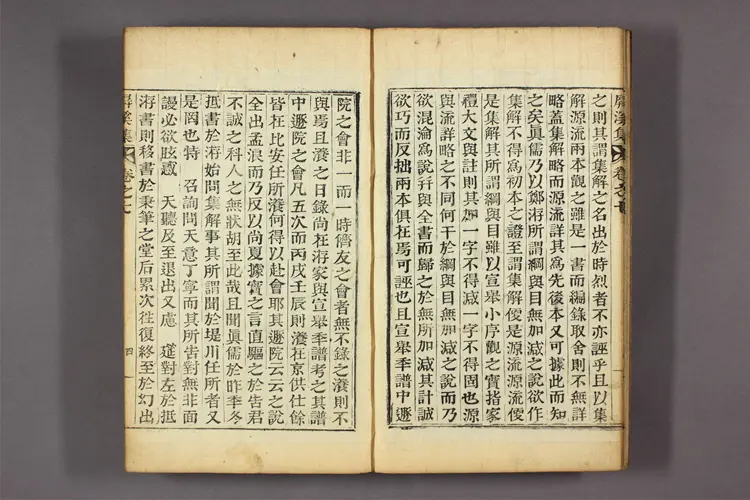 屛溪集 卷之七
之則其謂集解之名出於時烈者不亦誣乎且以集
解源流兩本觀之雖是一書而編錄取舍則不無詳
略蓋集解略而源流詳其爲先後本又可據此而知
之矣眞儒乃以鄭洊所謂綱與目無加減之說欲作
集解不得爲初本之證至謂集解俊是源流源流俊
是集解其所謂綱與目雖以宣擧小序觀之實指家
禮大文與註則其加一字不得減一字不得固也源
與流詳略之不同何干於綱與目無加減之說而乃
欲混淪爲說幷與全書而歸之於無所加減其計誠
欲巧而反拙兩本俱在焉可誣也且宣擧季譜中遯
院之會非一而一時儕友之會者無不錄之濩則不
與焉且濩之日錄尙在洊家與宣擧季譜考之其譜
中遯院之會凡五次而丙戌壬辰則濩在京供仕餘
皆在比安任所濩何得以赴會耶其遯院云云之說
全出孟浪而乃反以尙夏據實之言直驅之於告君
不誠之科人之無狀胡至此哉且聞眞儒於昨季冬
抵書於洊始問集解事其所謂聞於堤川任所者又
是罔也特 召詢問天意丁寧而其所告對無非面
謾必欲眩惑 天聽及至退出又慮 筵對左於抵
洊書則移書於秉筆之堂后累次徃復終至於幻出
屛溪集 卷之七 四